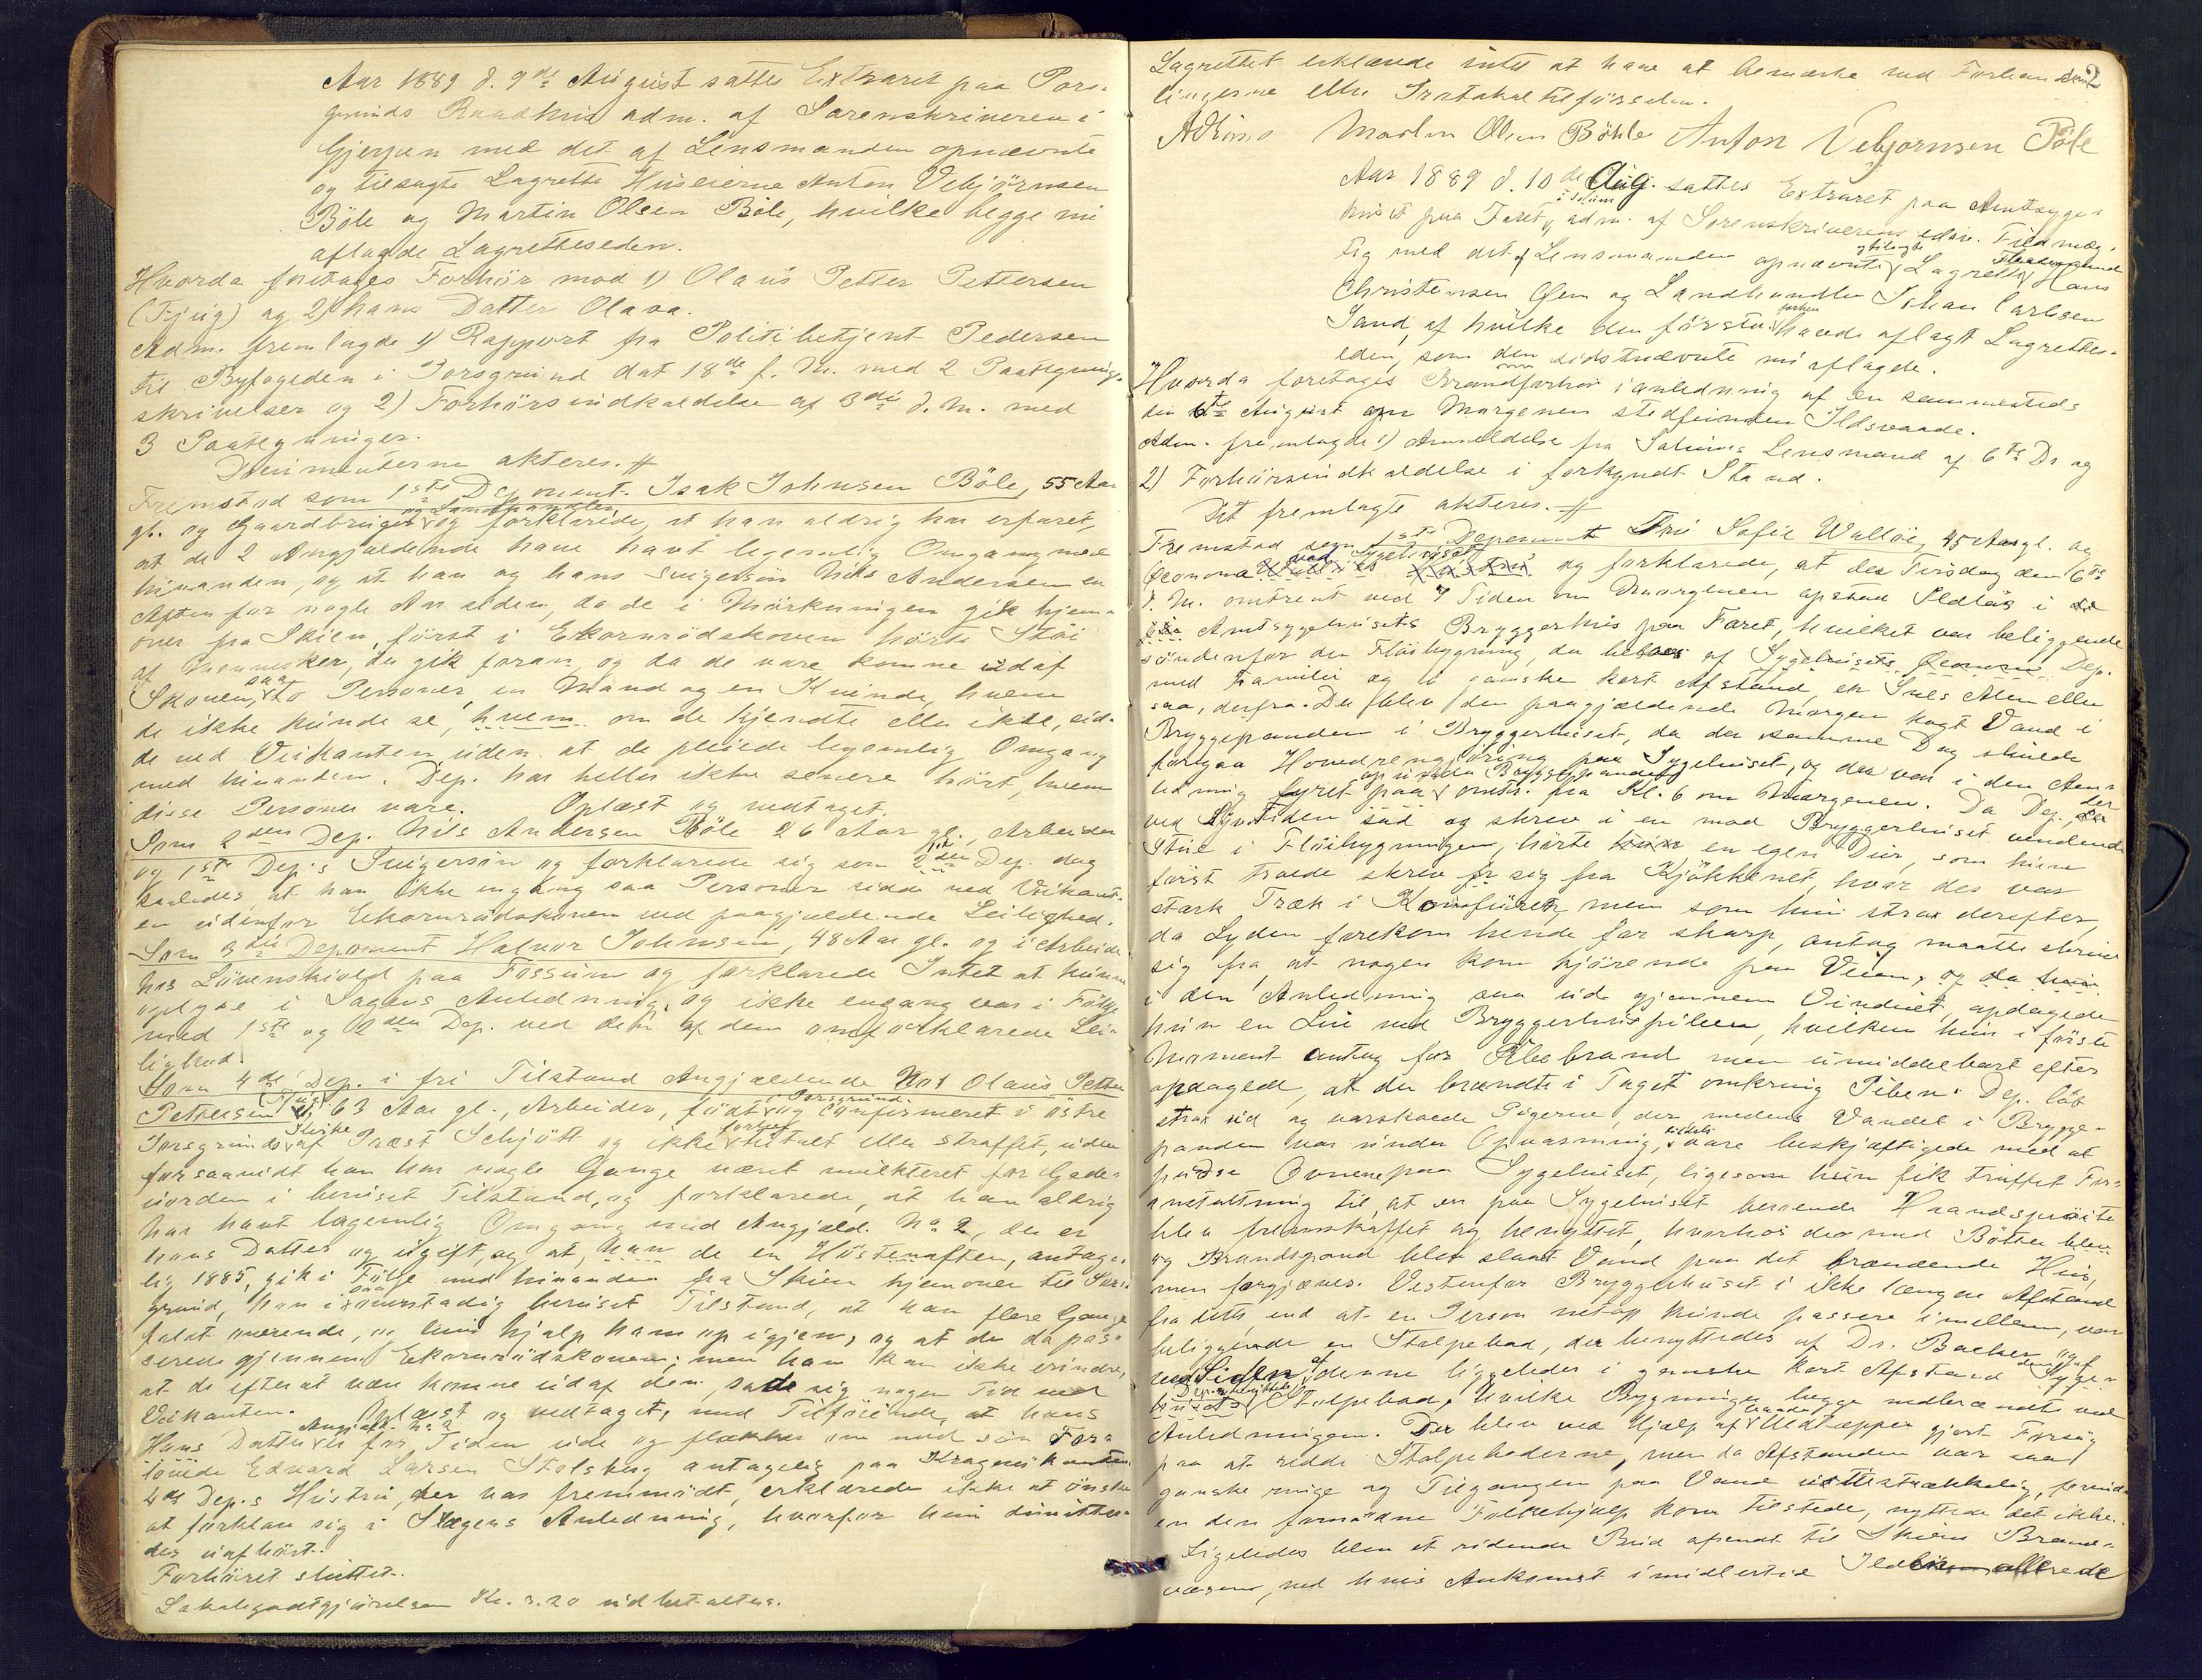 Aar 1889 d. 9de August sattes Extraret paa Pors-
grunds Raadhus adm. af Sorenskriveren i
Gjerpen med det af Lensmanden opnævnte
og tilsagte Lagrette Huseierne Anton Vebjörnsen
Böle og Martin Olsen Böle, hvilke begge nu
aflagde Lagretteseden.
Hvorda foretages Forhör mod 1) Olaus Petter Pettersen
(Fjug) og 2) hans Datter Olava.
Adm. fremlagde 1) Rapport fra Politibetjent Pedersen
til Byfogeden i Porsgrund dat 18de f. M. med 2 Paategnings-
skrivelser og 2) Forhörsindkaldelse af 3die d. M. med
3 Paategninger.
Dokumenterne akteres.
Fremstod som 1ste Deponent Isak Johnsen Böle, 55 Aar
gl. og Gaardbruger og Landhandler og forklarede, at han aldrig har erfaret,
at de 2 Angjældende have havt legemlig Omgang med
hinanden, og at han og hans Svigersön Nils Andersen en
Aften for nogle Aar siden, da de i Mörkningen gik hjem-
over fra Skien, först i Ekornrödskoven hörte Stöi
af Mennesker, der gik foran, og da de vare komne ud af
Skoven, saa to Personer, en Mand og en Kvinde, hvem
de ikke kunde se, hvem om de kjendte eller ikke, sid-
de ved Veikanten uden at de pleiede legemlig Omgang
med hinanden. Dep. har heller ikke senere hört, hvem
disse Personer vare. Oplæst og vedtaget.
Som 2den Dep. Nils Andersen Böle 26 Aar gl., Arbeider
og 1ste Dep.s Svigersön og forklarede sig som 1ste 2den Dep. dog
saaledes, at han ikke engang saa Personer sidde ved Veikant-
en udenfor Ekornrödskoven ved paagjældende Leilighed.
Som 3die Deponent Halvor Johnsen, 48 Aar gl. og i Arbeide
hos Lövenskiold paa Fossum og forklarede Intet at kunne
oplyse i Sagens Anledning, og ikke engang var i Fölge
med 1ste og 2den Dep. ved den af dem omforklarede Lei-
lighed.
Som 4de Dep. i fri Tilstand Angjældende No 1 Olaus Petter
Pettersen (Fjug) 63 Aar gl., Arbeider, födt Porsgrund og confirmeret i östre
Porsgrunds Kirke af Præst Schjött og ikke forhen tiltalt eller straffet, uden
forsaavidt han har nogle Gange været mulkteret for Gade-
uorden i beruset Tilstand, og forklarede, at han aldrig
har havt legemlig Omgang med Angjæld. No 2, der er
hans Datter og ugift, og at, han de en Höstenaften, antage-
lig 1885, gik i Fölge med hinanden fra Skien hjemover til Pors-
grund, han i saa overstadig beruset Tilstand, at han flere Gange
faldt overende, og hun hjalp ham op igjen, og at de da pas-
serede gjennem Ekornrödskoven; men han kan ikke erindre,
at de efterat være komne ud af den, satte sig nogen Tid ved
Veikanten. Oplæst og vedtaget, med Tilföiende, at hans
Hans Datter Angjæld. No 2 er for Tiden ude og flakker om med sin For-
lovede Edvard Larsen Stolsberg antagelig paa Kragerökanten.
4de Dep.s Hustru, der var fremmödt, erklærede ikke at önske
at forklare sig i Sagens Anledning, hvorfor hun dimitter-
des uafhört.
Forhöret sluttet.
Lokalegodtgjörelsen Kr. 3.20 udbetaltes.
2
Lagrettet erklærede intet at have at bemærke ved Forhand-
lingerne eller Protokoltilförselen.
Martin Olsen Böhle Anton Vebjornsen Böle
Aar 1889 d. 10de Aug. sattes Extraret paa Amtssyge-
huset paa Faret i Solum, adm. af Sorenskriverens edsv. Fuldmæg-
tig med det af Lensmanden opnævnte og tilsagte Lagrette Hans
Christensen Öen og Landhandler Johan Carlsen
Sand, af hvilke den förstn. forhen havde aflagt Lagrettes-
eden, som den sidstnævnte nu aflagde.
Hvorda foretages Brandforhör i anledning af en sammesteds
den 6te August om Morgenen stedfunden Ildsvaade.
Adm. fremlagde 1) Anmeldelse fra Solums Lensmand af 6te Ds og
2) Forhörsindkaldelse i forkyndt Stand.
Det fremlagte akteres.
Fremstod som 1ste Deponent Fru Sofie Wallöe, 45 Aar gl. og
Oeconoma ved Sygehuset og forklarede, at der Tirsdag den 6te
d. M. omtrent ved 7 Tiden om Morgenen opstod Ildlös i
Amtssygehusets Bryggerhus paa Faret, hvilket var beliggende
söndenfor den Flöibygning, der beboes af Sygehusets Oeconom Dep.
med Familie og i ganske kort Afstand, en Snes Alen eller
saa, derfra. Der blev den paagjældende Morgen kogt Vand i
Bryggepanden i Bryggerhuset, da der samme Dag skulde
foregaa Hovedrengjöring paa Sygehuset, og der var i den An-
ledning fyret paa op under Bryggepanden omtr. fra Kl. 6 om Morgenen. Da Dep., der
ved Syvtiden sad og skrev i en mod Bryggerhuset vendende
Stue i Flöibygningen, hörte en egen Dur, som hun
först troede skrev sig fra Kjökkenet, hvor der var
stærk Træk i Komfuret, men som hun strax derefter,
da Lyden forekom hende for skarp, antog maatte skrive
sig fra, at nogen kom kjörende paa Veien, og da hun
i den Anledning saa ud gjennem Vinduet, opdagede
hun en Lue ved Bryggerhuspiben, hvilken hun i förste
Moment antog for Pibebrand men umiddelbart efter
opdagede, at der brændte i Taget omkring Piben. Dep. löb
strax ud og varskoede Pigerne, der medens Vandet i Brygge-
panden var under Opvarmning, vare beskjæftigede med at
pudse Ovnene paa Sygehuset, ligesom hun fik truffet For-
anstaltning til, at en paa Sygehuset beroende Haandspröite
blev fremskaffet og benyttet, hvorhos der med Bötter
og Brandspand blev slaaet Vand paa det brændende Hus,
men forgjæves. Vestenfor Bryggerhuset i ikke længere Afstand
fra dette, end at en Person netop kunde passere imellem, var
beliggende en Stolpebod, der benyttedes af Dr. Backer, og af
ved Siden af denne liggeledes i ganske kort Afstand den Syge-
husets Dep. benyttede Stolpebod, hvilke Bygninger begge nedbrændte ved
Anledningen. Der blev ved Hjælp af vaade Uldtæpper gjort Forsög
paa at redde Stolpeboderne, men da Afstanden var saa
ganske ringe og Tilgangen paa Vand utilstrækkelig, forind-
en den fornödne Folkehjælp kom tilstede, nyttede det ikke.
Ligeledes blev et ridende Bud afsendt til Skiens Brand-
væsen, ved hvis Ankomst imidlertid Ilden allerede